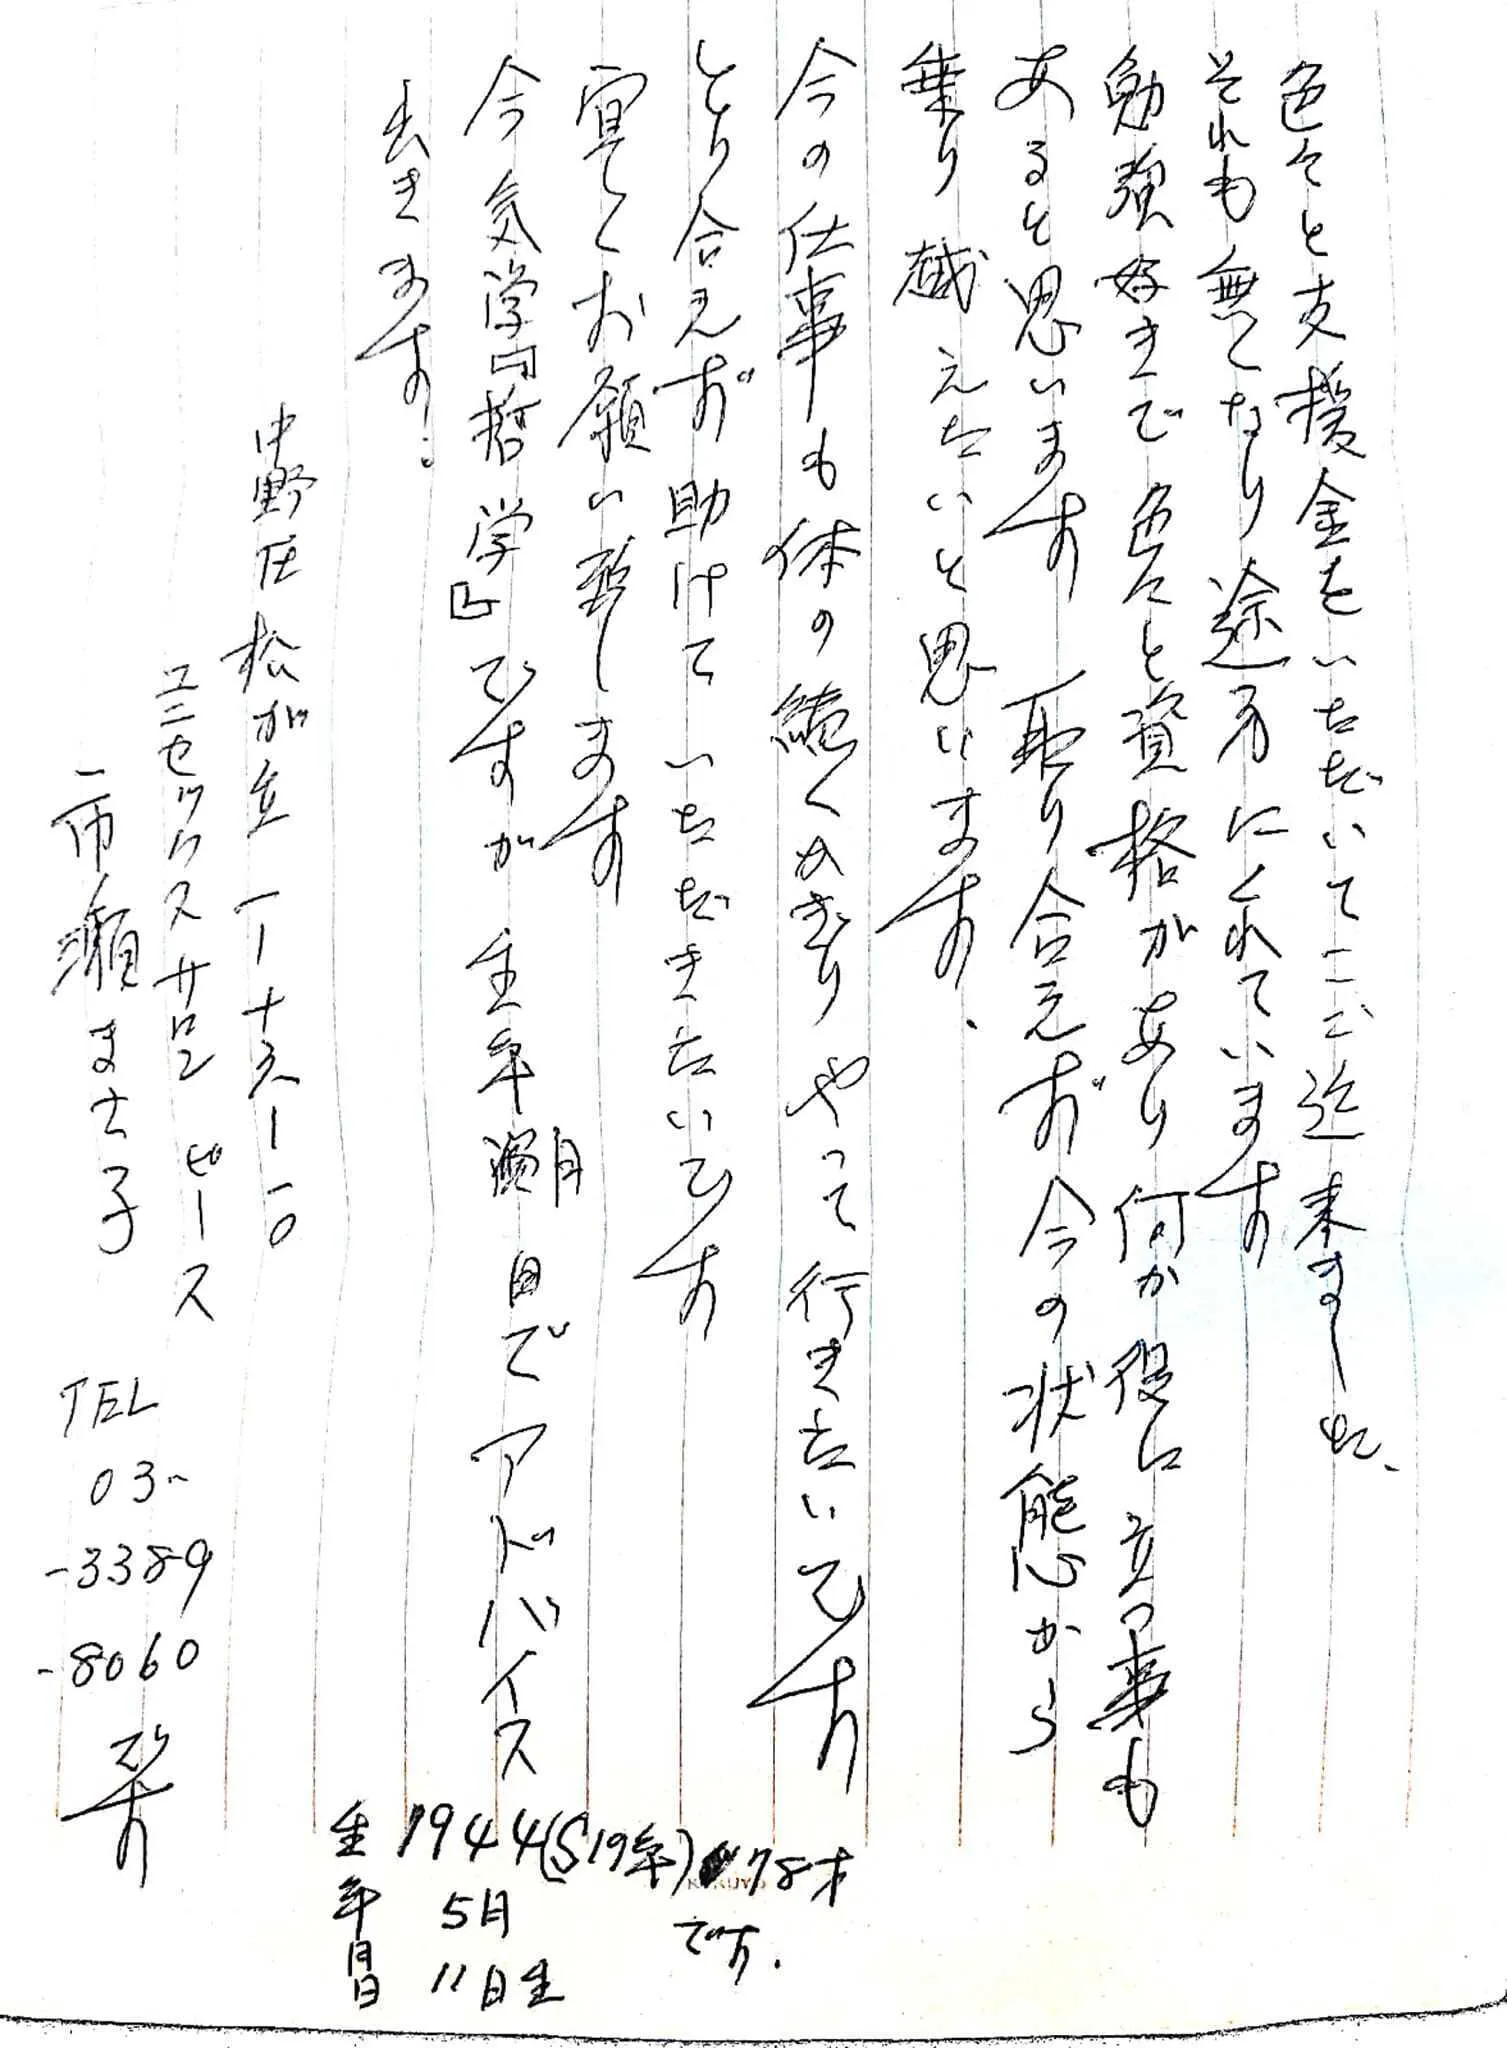 色々と支援金をいただいてここ迄来ました、
それも無くなり途方にくれています
勉強好きで色々と資格があり何か役に立つ事も
あると思います 取り合えず今の状態から
乗り越えたいと思います、
今の仕事も体の続くかぎりやって行きたいです
とり合えず助けていただきたいです
宜しくお願い致します
今気学『哲学』ですが 生年月日でアドバイス
出きます。
中野区松が丘
ユニセックスサロン ピース
一市瀬ます子
TEL
03-
-3389
-8060
です
生年月日
1944(S19年)78才
です.
5月
11日生
KOKUYO